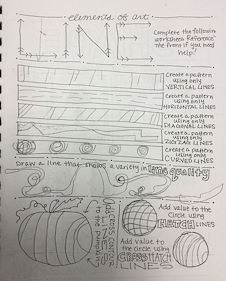 elements of art
LINE
Complete the following
worksheet. Reference
the front if you need
help!
Create a pattern
using only
VERTICAL LINES
Create a pattern
using only
HORIZONTAL LINES
Create a pattern
using only
DIAGONAL LINES
Create a pattern
using only
ZIGZAG LINES
Create a pattern
using only
CURVED LINES
Draw a line that shows a variety in line quality
Add CROSS CONTOUR
LINES
to the pumpkin
Add value to the
circle using
HATCH LINES
Add value to
the circle using
CROSSHATCH
LINES